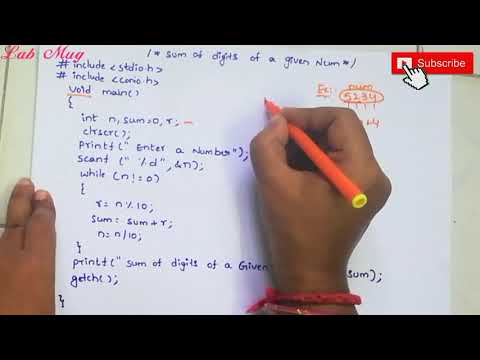 Lab Mug
/* sum of digits of a given Num */
Subscribe
# include <stdio.h>
# include <conio.h>
void main()
Ex: num
5234
{
int n, sum=0, r;
+4
clrscr();
printf(" Enter a Number");
scanf (" %d", &n);
while (n!=0)
{
r= n%10;
sum= sum+r;
n= n/10;
}
printf(" sum of digits of a Given sum);
getch();
}